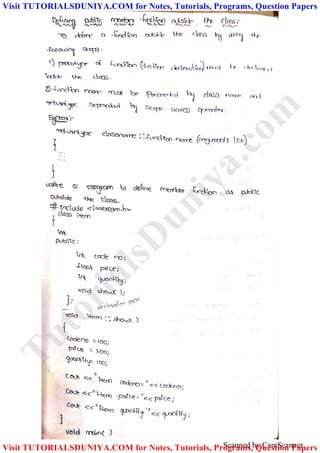 Visit TUTORIALSDUNIYA.COM for Notes, Tutorials, Programs, Question Papers
Defining public member function outside the class:-
To define a function outside the class by using the
following steps.
1) prototype of function (function declaration) must be declared
inside the class.
2) function name must be preceded by class name and
returntype seperated by scope access operator.
Syntax:-
returntype classname :: function name (arguments list)
{
}
write a program to define member function as public
outside the class.
# include <iostream.h>
class item
{
int
public:
int code no;
float price;
int quantity;
void show( );
};
void item :: show( )
{
codeno = 100;
price = 200;
quantity = 100;
cout << "Item codeno=" << codeno;
cout << "Item price=" << price;
cout << "Item quantity" << quantity;
}
void main( )
TutorialsDuniya.com
Scanned by CamScanner
Visit TUTORIALSDUNIYA.COM for Notes, Tutorials, Programs, Question Papers